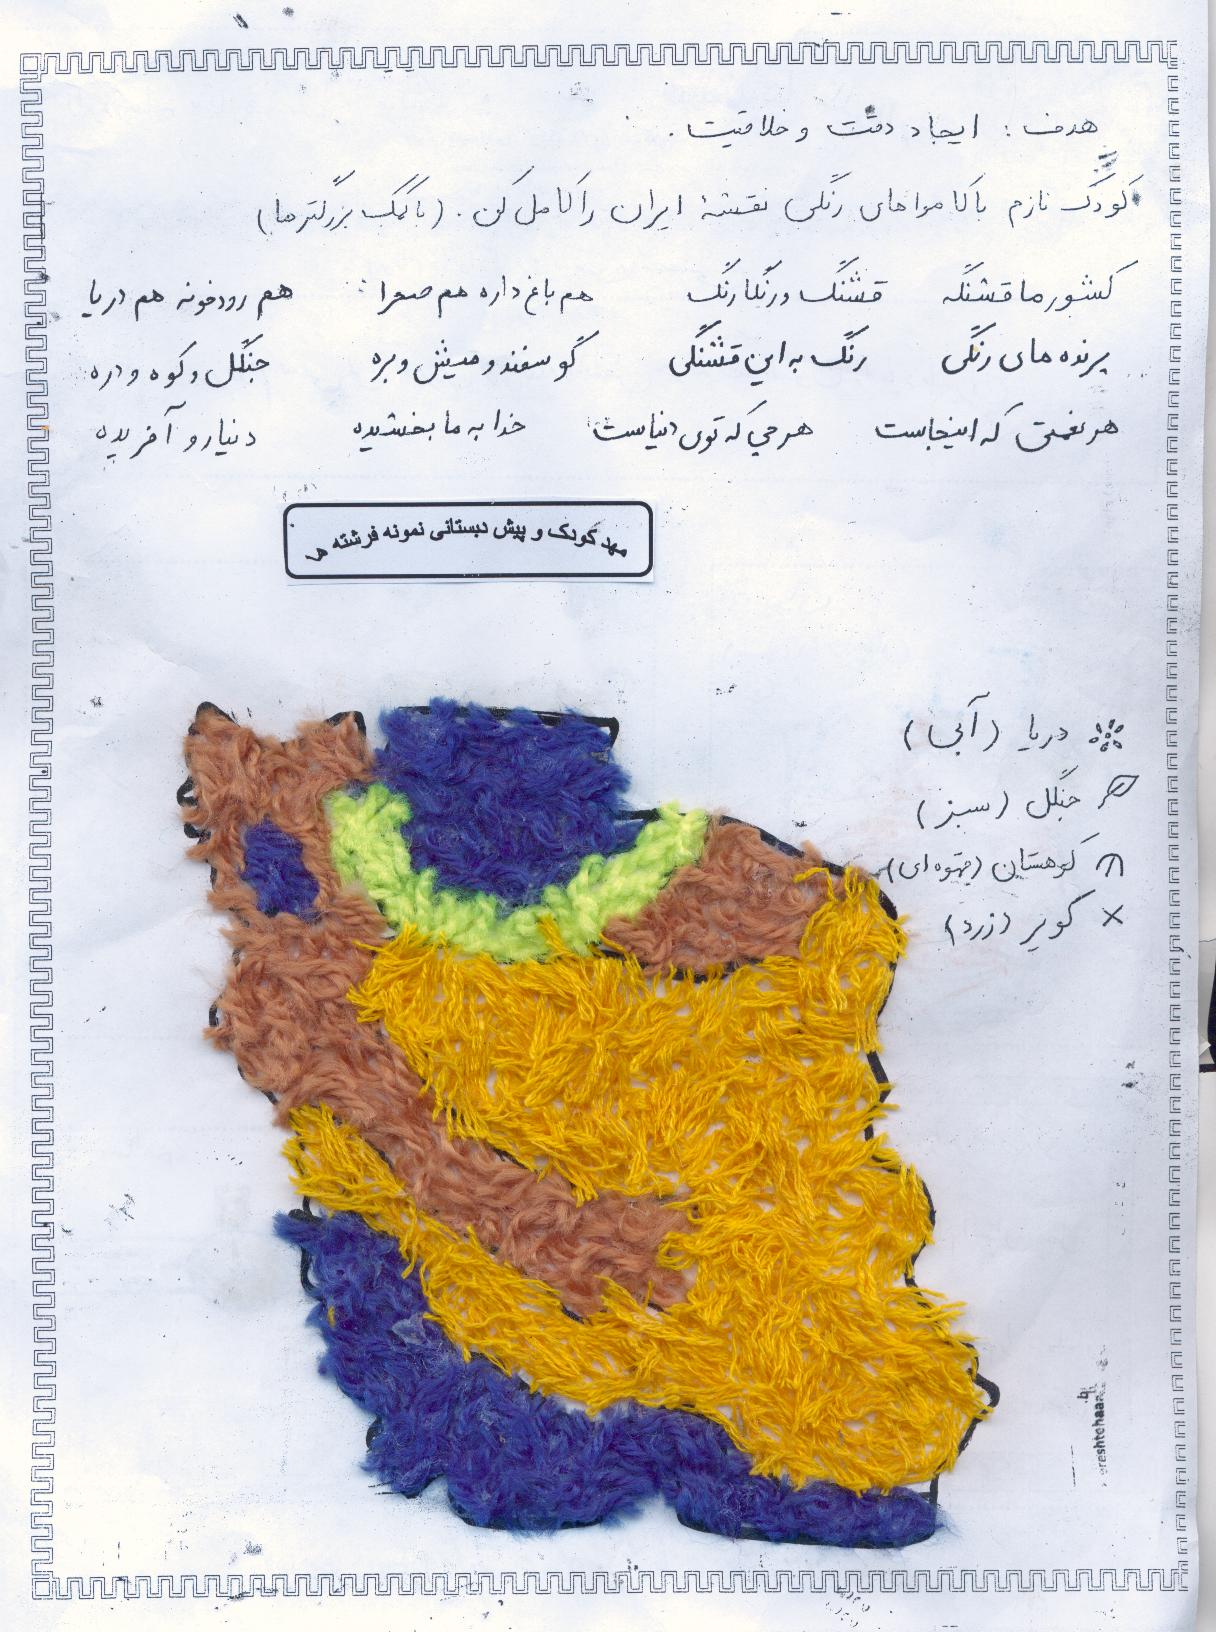 هدف : ایجاد دقت و خلاقیت .
کودک نازم با کامواهای رنگی نقشهٔ ایران را کامل کن . (با کمک بزرگترها)
کشور ما قشنگه قشنگ و رنگارنگ هم باغ داره هم صحرا هم رودخونه هم دریا
پرنده های رنگی رنگ به این قشنگی گوسفند و میش و بره جنگل و کوه و دره
هر نعمتی که اینجاست هر چی که توی دنیاست خدا به ما بخشیده دنیا رو آفریده
مهد کودک و پیش دبستانی نمونه فرشته ها
دریا (آبی)
جنگل (سبز)
کوهستان (قهوه ای)
× کویر (زرد)